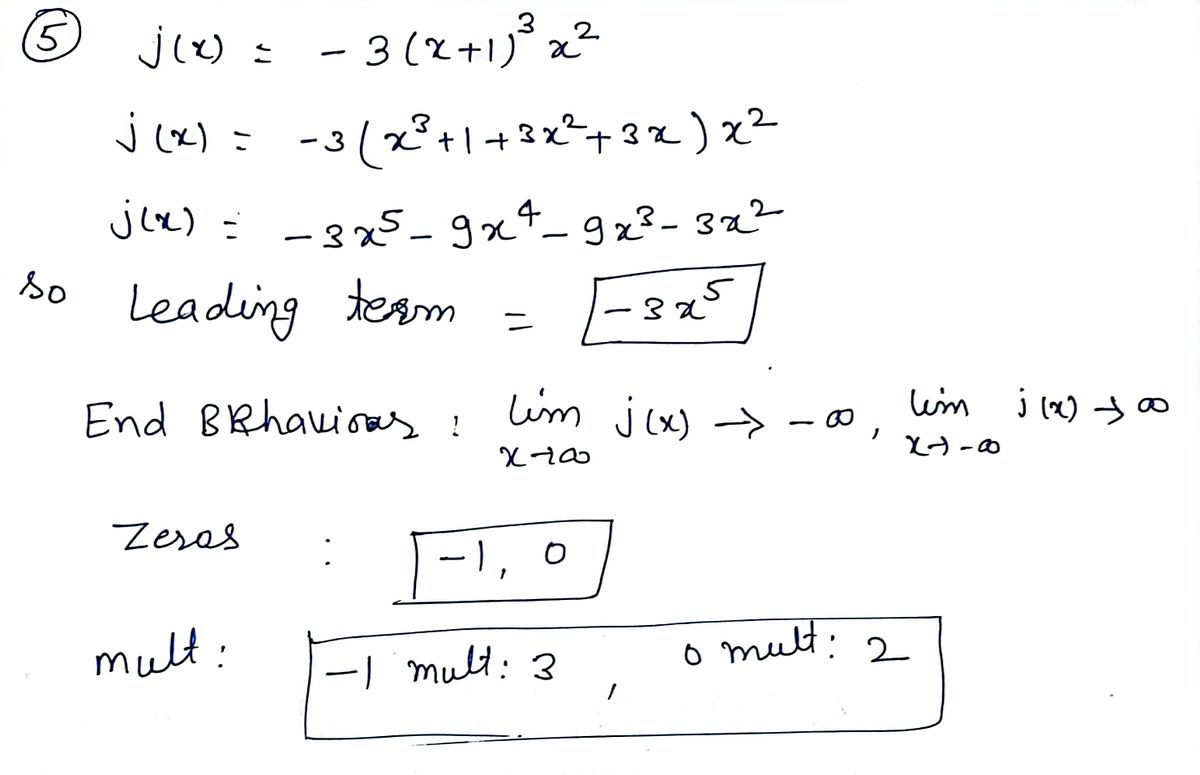 ⑤ j(x) = -3(x+1)³ x²
j(x) = -3(x³+1+3x²+3x) x²
j(x) = -3x⁵ - 9x⁴ - 9x³ - 3x²
so Leading term = -3x⁵
End BRhaviors : lim x→∞ j(x) → -∞, lim x→-∞ j(x) → ∞
Zeros : -1, 0
mult : -1 mult: 3 , 0 mult: 2